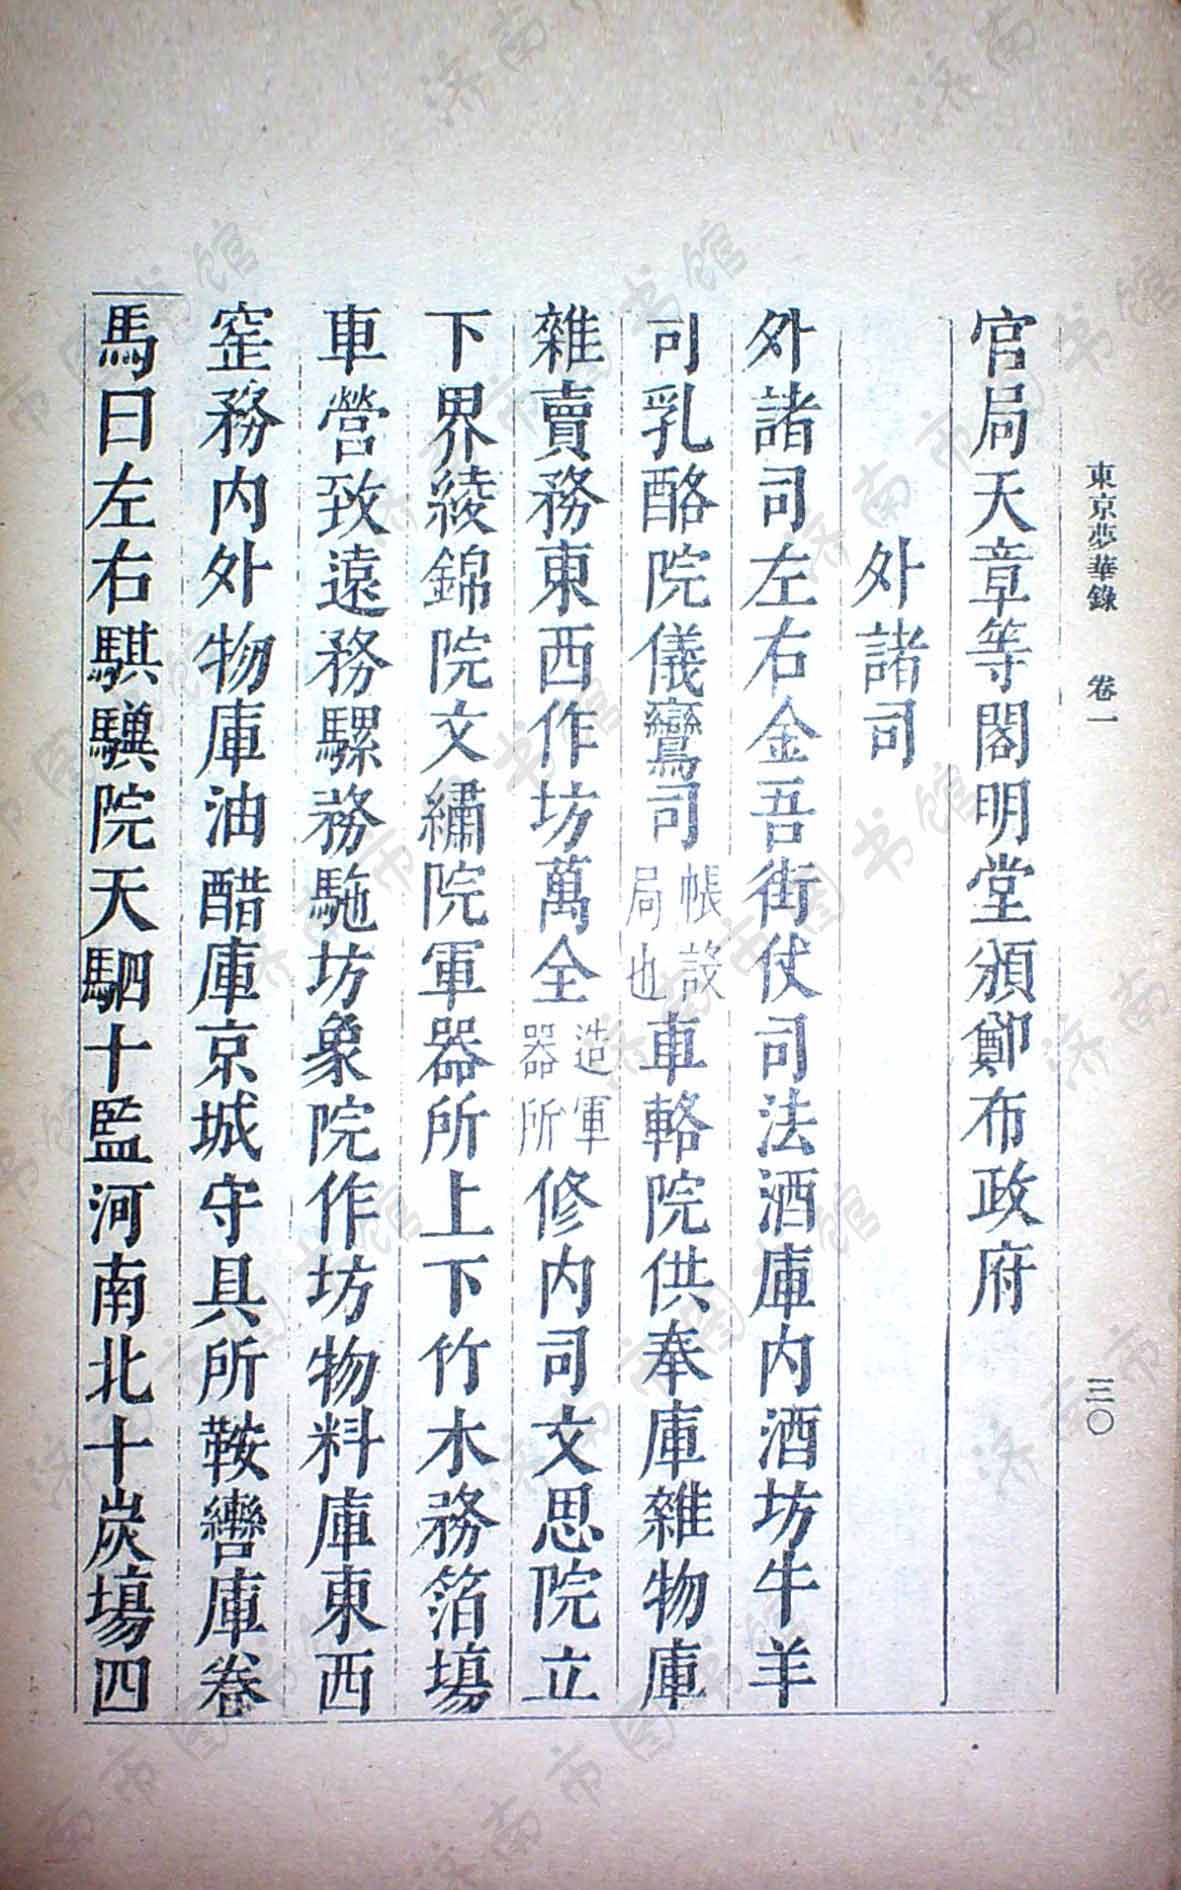 東京夢華錄　卷一　三〇
官局天章等閣明堂頒鄭布政府
外諸司
外諸司左右金吾街仗司法酒庫内酒坊牛羊
司乳酪院儀鸞司帳設局也車輅院供奉庫雜物庫
雜賣務東西作坊萬全造軍器所修内司文思院立
下界綾錦院文繡院軍器所上下竹木務箔塲
車營致遠務騾務駞坊象院作坊物料庫東西
窑務内外物庫油醋庫京城守具所鞍轡庫卷
馬曰左右騏驥院天駟十監河南北十炭塲四
济南市图书馆